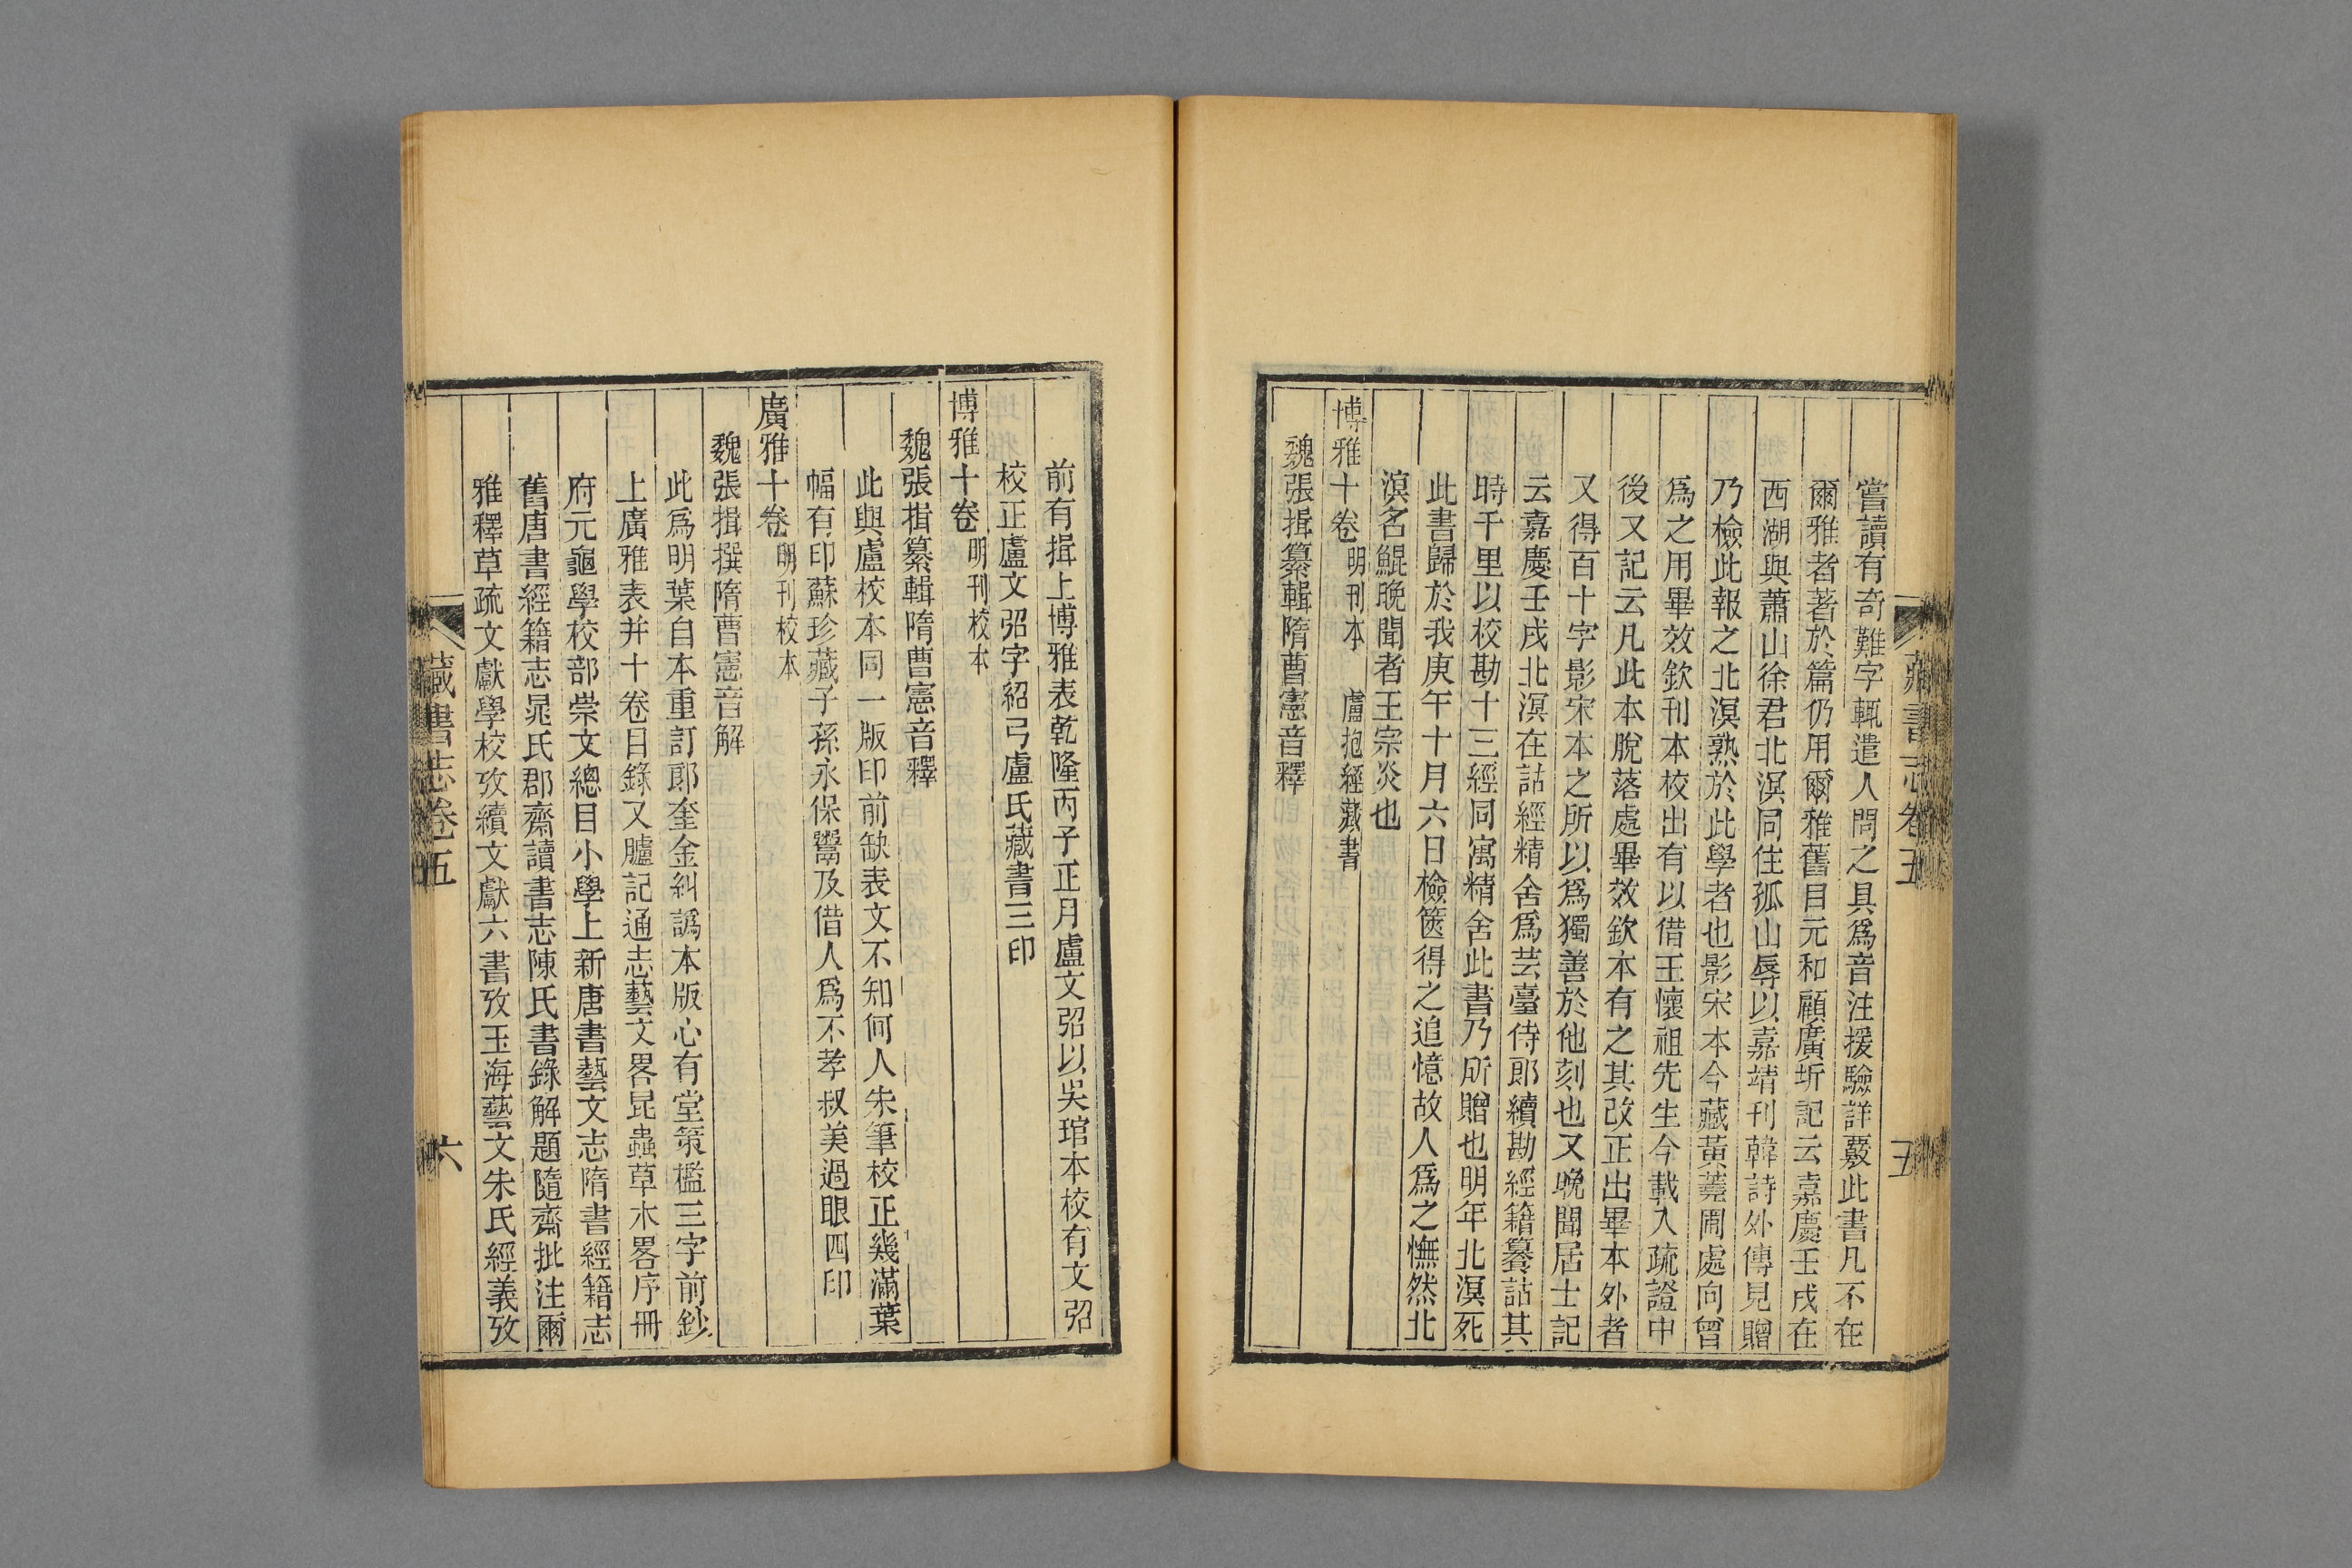 嘗讀有奇難字輒遣人問之具爲音注援驗詳覈此書凡不在
爾雅者著於篇仍用爾雅舊目元和顧廣圻記云嘉慶壬戌在
西湖與蕭山徐君北溟同住孤山辱以嘉靖刊韓詩外傳見贈
乃檢此報之北溟熟於此學者也影宋本今藏黃蕘圃處向曾
爲之用畢效欽刊本校出有以借王懷祖先生今載入疏證中
後又記云凡此本脫落處畢效欽本有之其改正出畢本外者
又得百十字影宋本之所以爲獨善於他刻也又晚聞居士記
云嘉慶壬戌北溟在詁經精舍爲芸臺侍郎續勘經籍籑詁其
時千里以校勘十三經同寓精舍此書乃所贈也明年北溟死
此書歸於我庚午十月六日檢篋得之追憶故人爲之憮然北
溟名鯤晚聞者王宗炎也
博雅十卷 明刊本 盧抱經藏書
魏張揖纂輯隋曹憲音釋
藏書志卷五 五
前有揖上博雅表乾隆丙子正月盧文弨以吳琯本校有文弨
校正盧文弨字紹弓盧氏藏書三印
博雅十卷 明刊校本
魏張揖纂輯隋曹憲音釋
此與盧校本同一版印前缺表文不知何人朱筆校正幾滿葉
幅有印蘇珍藏子孫永保鬻及借人爲不孝叔美過眼四印
廣雅十卷 明刊校本
魏張揖撰隋曹憲音解
此爲明葉自本重訂郎奎金糾譌本版心有堂策檻三字前鈔
上廣雅表并十卷目錄又臚記通志藝文畧昆蟲草木畧序冊
府元龜學校部崇文總目小學上新唐書藝文志隋書經籍志
舊唐書經籍志晁氏郡齋讀書志陳氏書錄解題隨齋批注爾
雅釋草疏文獻學校攷續文獻六書攷玉海藝文朱氏經義攷
藏書志卷五 六